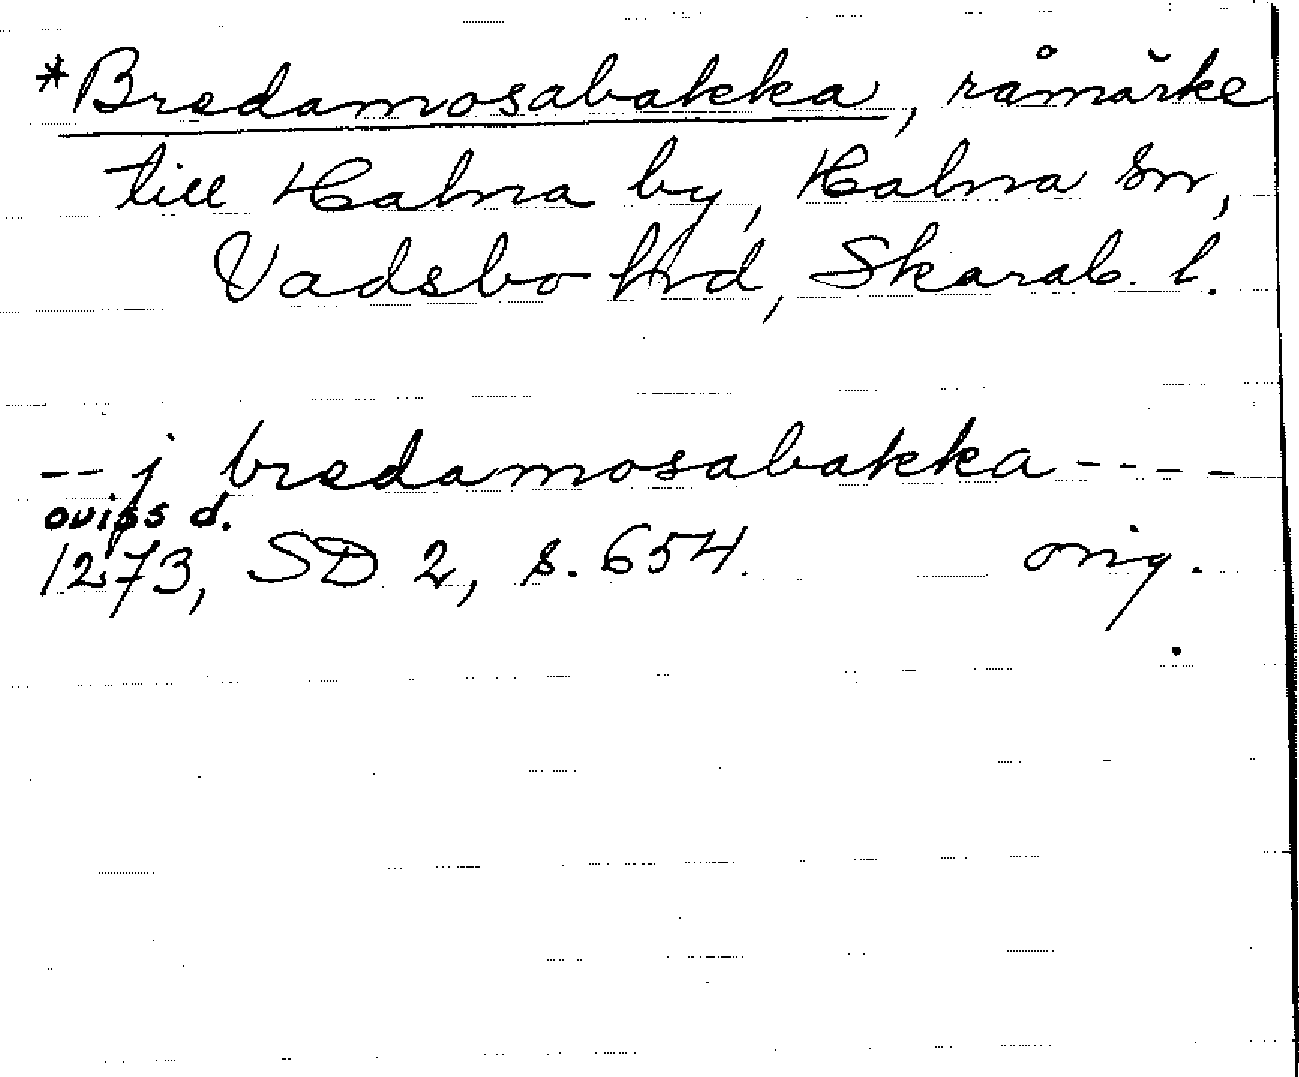 *Bredamosabakka, råmärke
till Halna by, Halna sn,
Vadsbo hrd, Skarab. l.
-- j bredamosabakka ----
oviss d.
1273, SD 2, s. 654. orig.